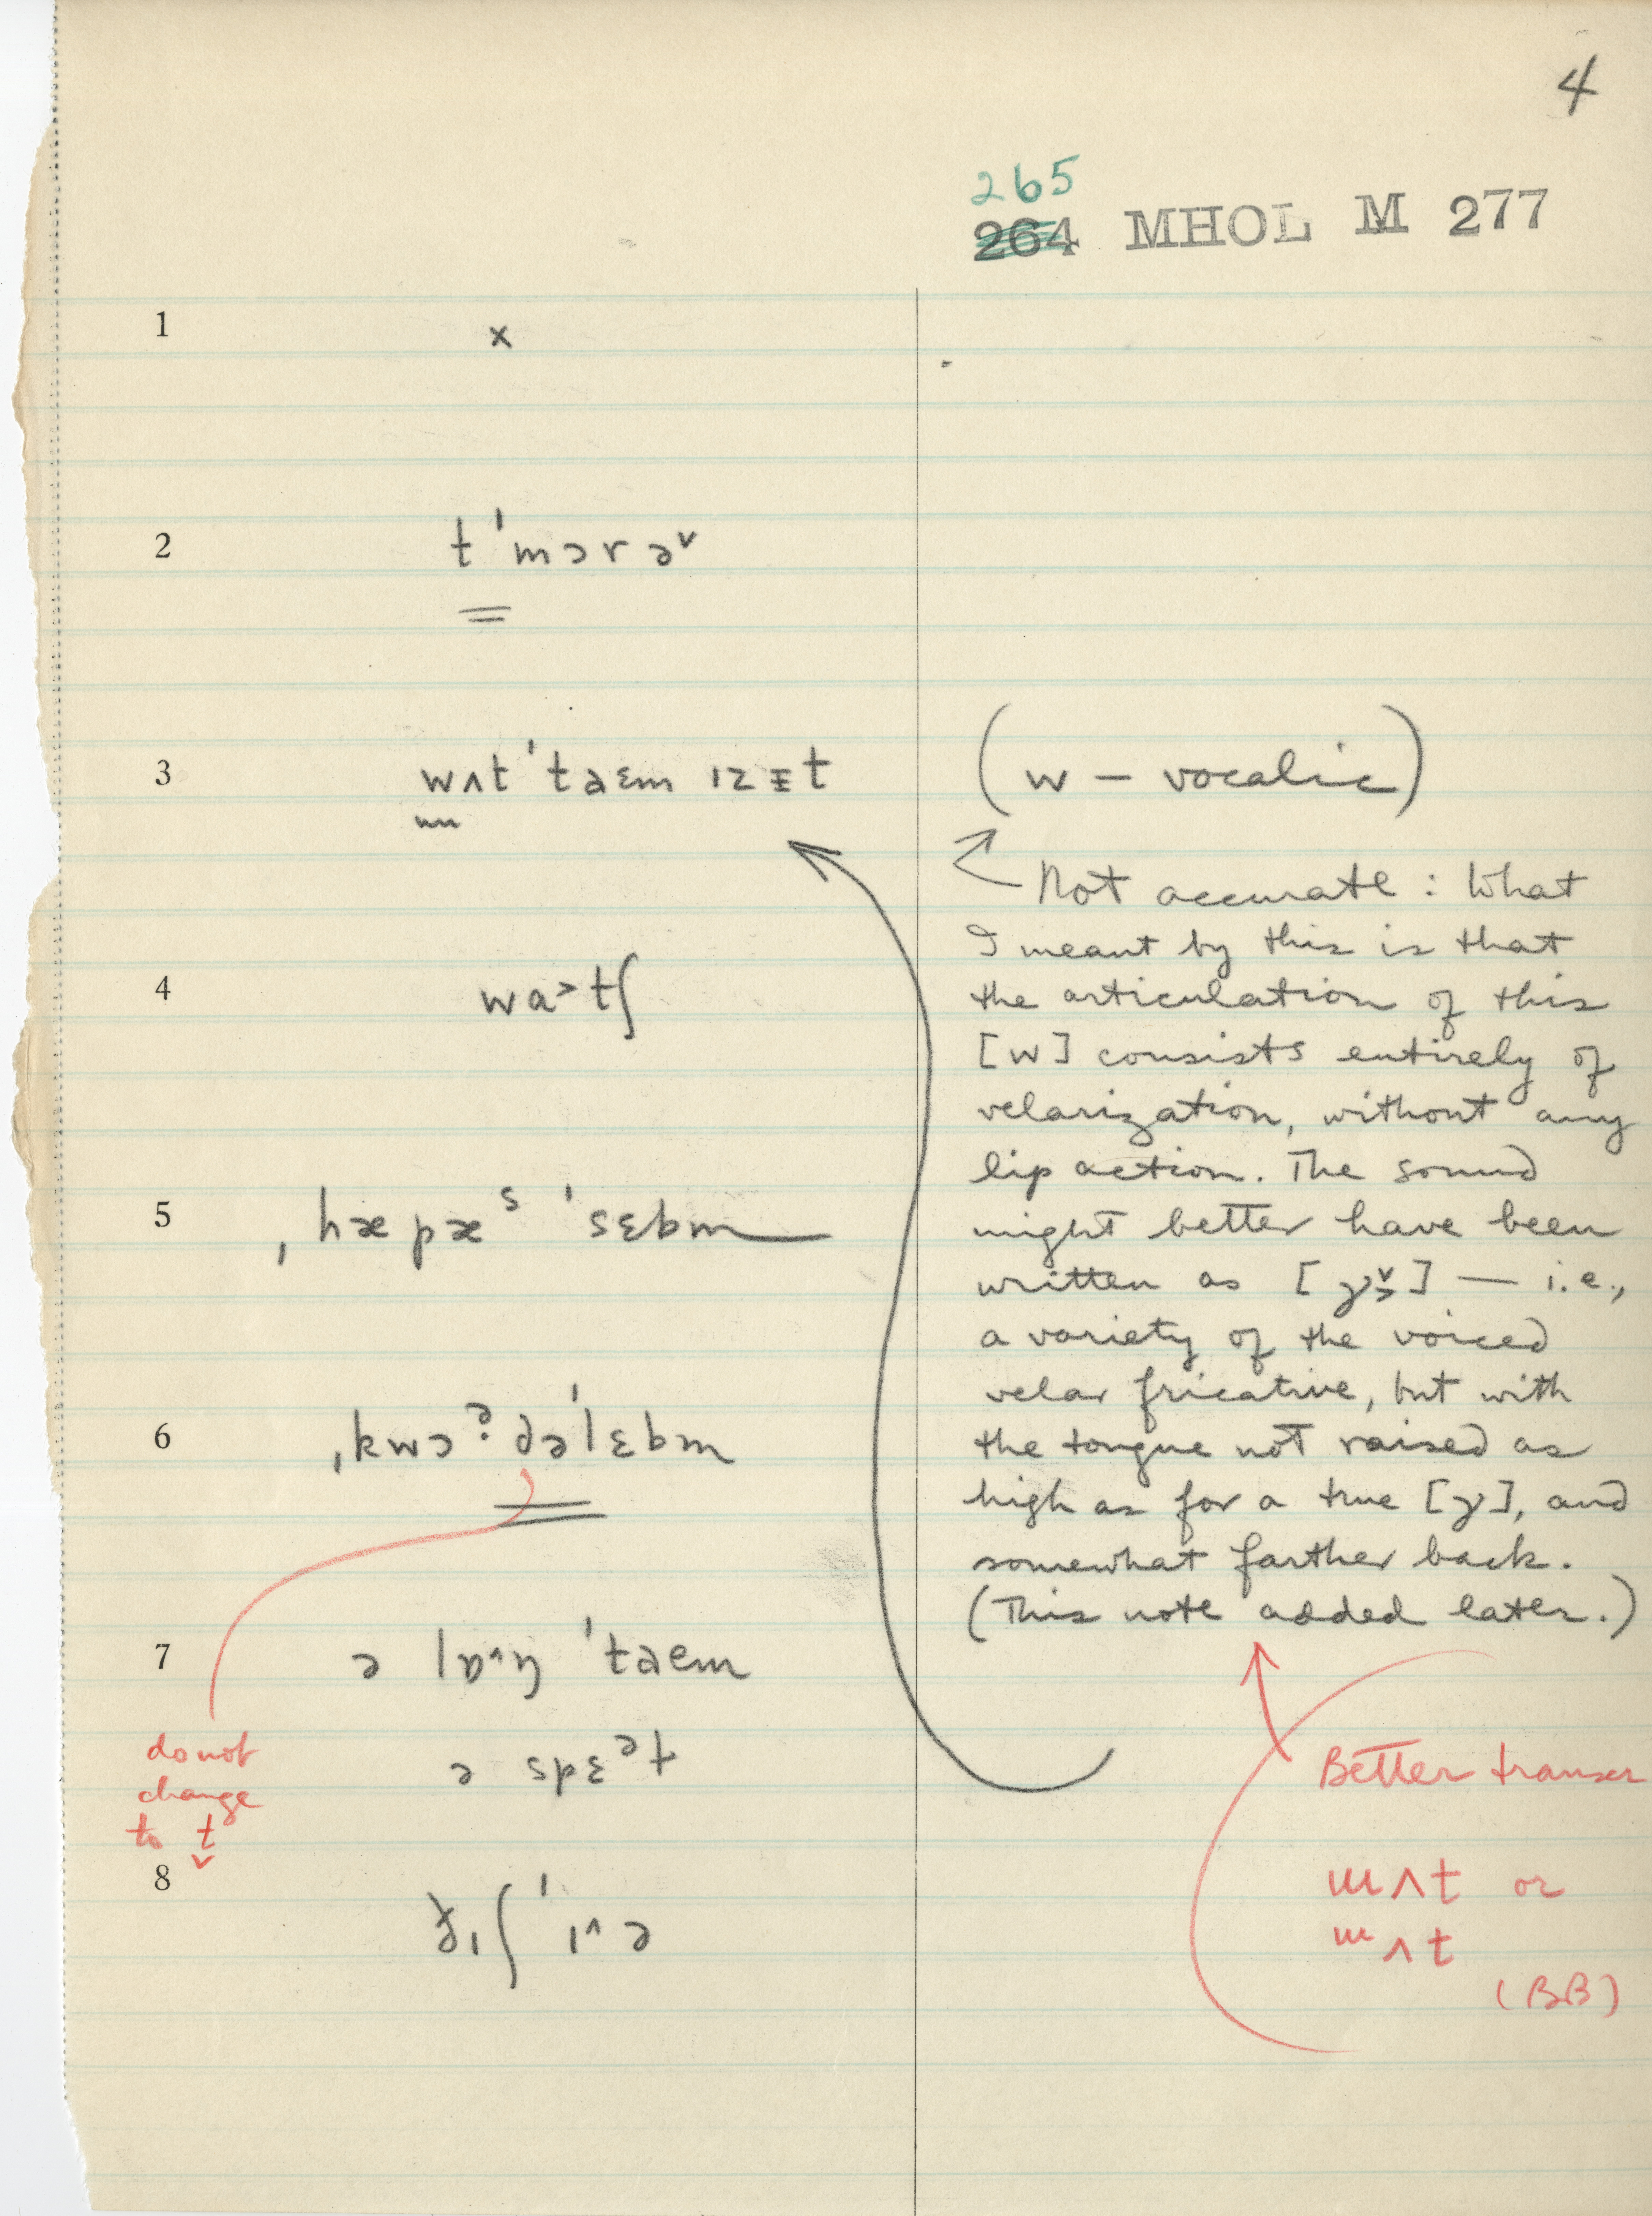 4
265
264 MHOL M 277
1 x
2 tˈmɔrə˅
3 wʌtˈtaɛm ɪzɪt (w – vocalic)
Not accurate: What
I meant by this is that
the articulation of this
4 wa˃tʃ
[w] consists entirely of
velarization, without any
lip action. The sound
5 ˌhæpæˢ ˈsɛbm
might better have been
written as [ɣ] — i.e.,
a variety of the voiced
velar fricative, but with
6 ˌkwɔʔdəˈlɛbm
the tongue not raised as
high as for a true [ɣ], and
somewhat farther back.
(This note added later.)
7 ə lɒ^ŋ ˈtaɛm
ə spɛᵊt
do not
change
to t̬
Better transcr
8 ɪʃ ˈɪ^ə
ɯʌt or
ɯʌt
(BB)